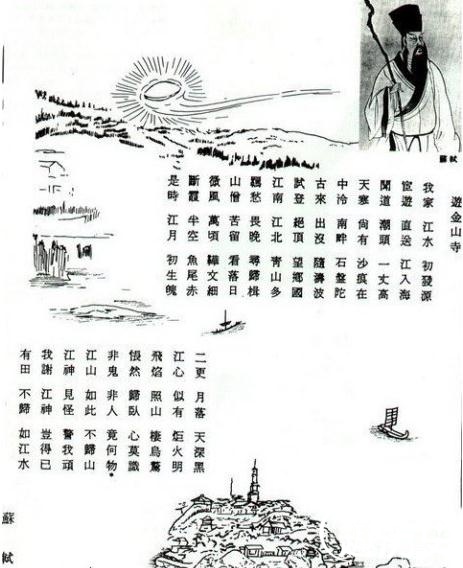 蘇軾
遊金山寺
我家 江水 初發源
宦遊 直送 江入海
聞道 潮頭 一丈高
天寒 尙有 沙痕在
中泠 南畔 石盤陀
古來 出沒 隨濤波
試登 絕頂 望鄉國
江南 江北 青山多
羈愁 畏晚 尋歸楫
山僧 苦留 看落日
微風 萬頃 鞾文細
斷霞 半空 魚尾赤
是時 江月 初生魄
二更 月落 天深黑
江心 似有 炬火明
飛焰 照山 棲鳥驚
悵然 歸臥 心莫識
非鬼 非人 竟何物*
江山 如此 不歸山
江神 見怪 警我頑
我謝 江神 豈得已
有田 不歸 如江水
蘇軾